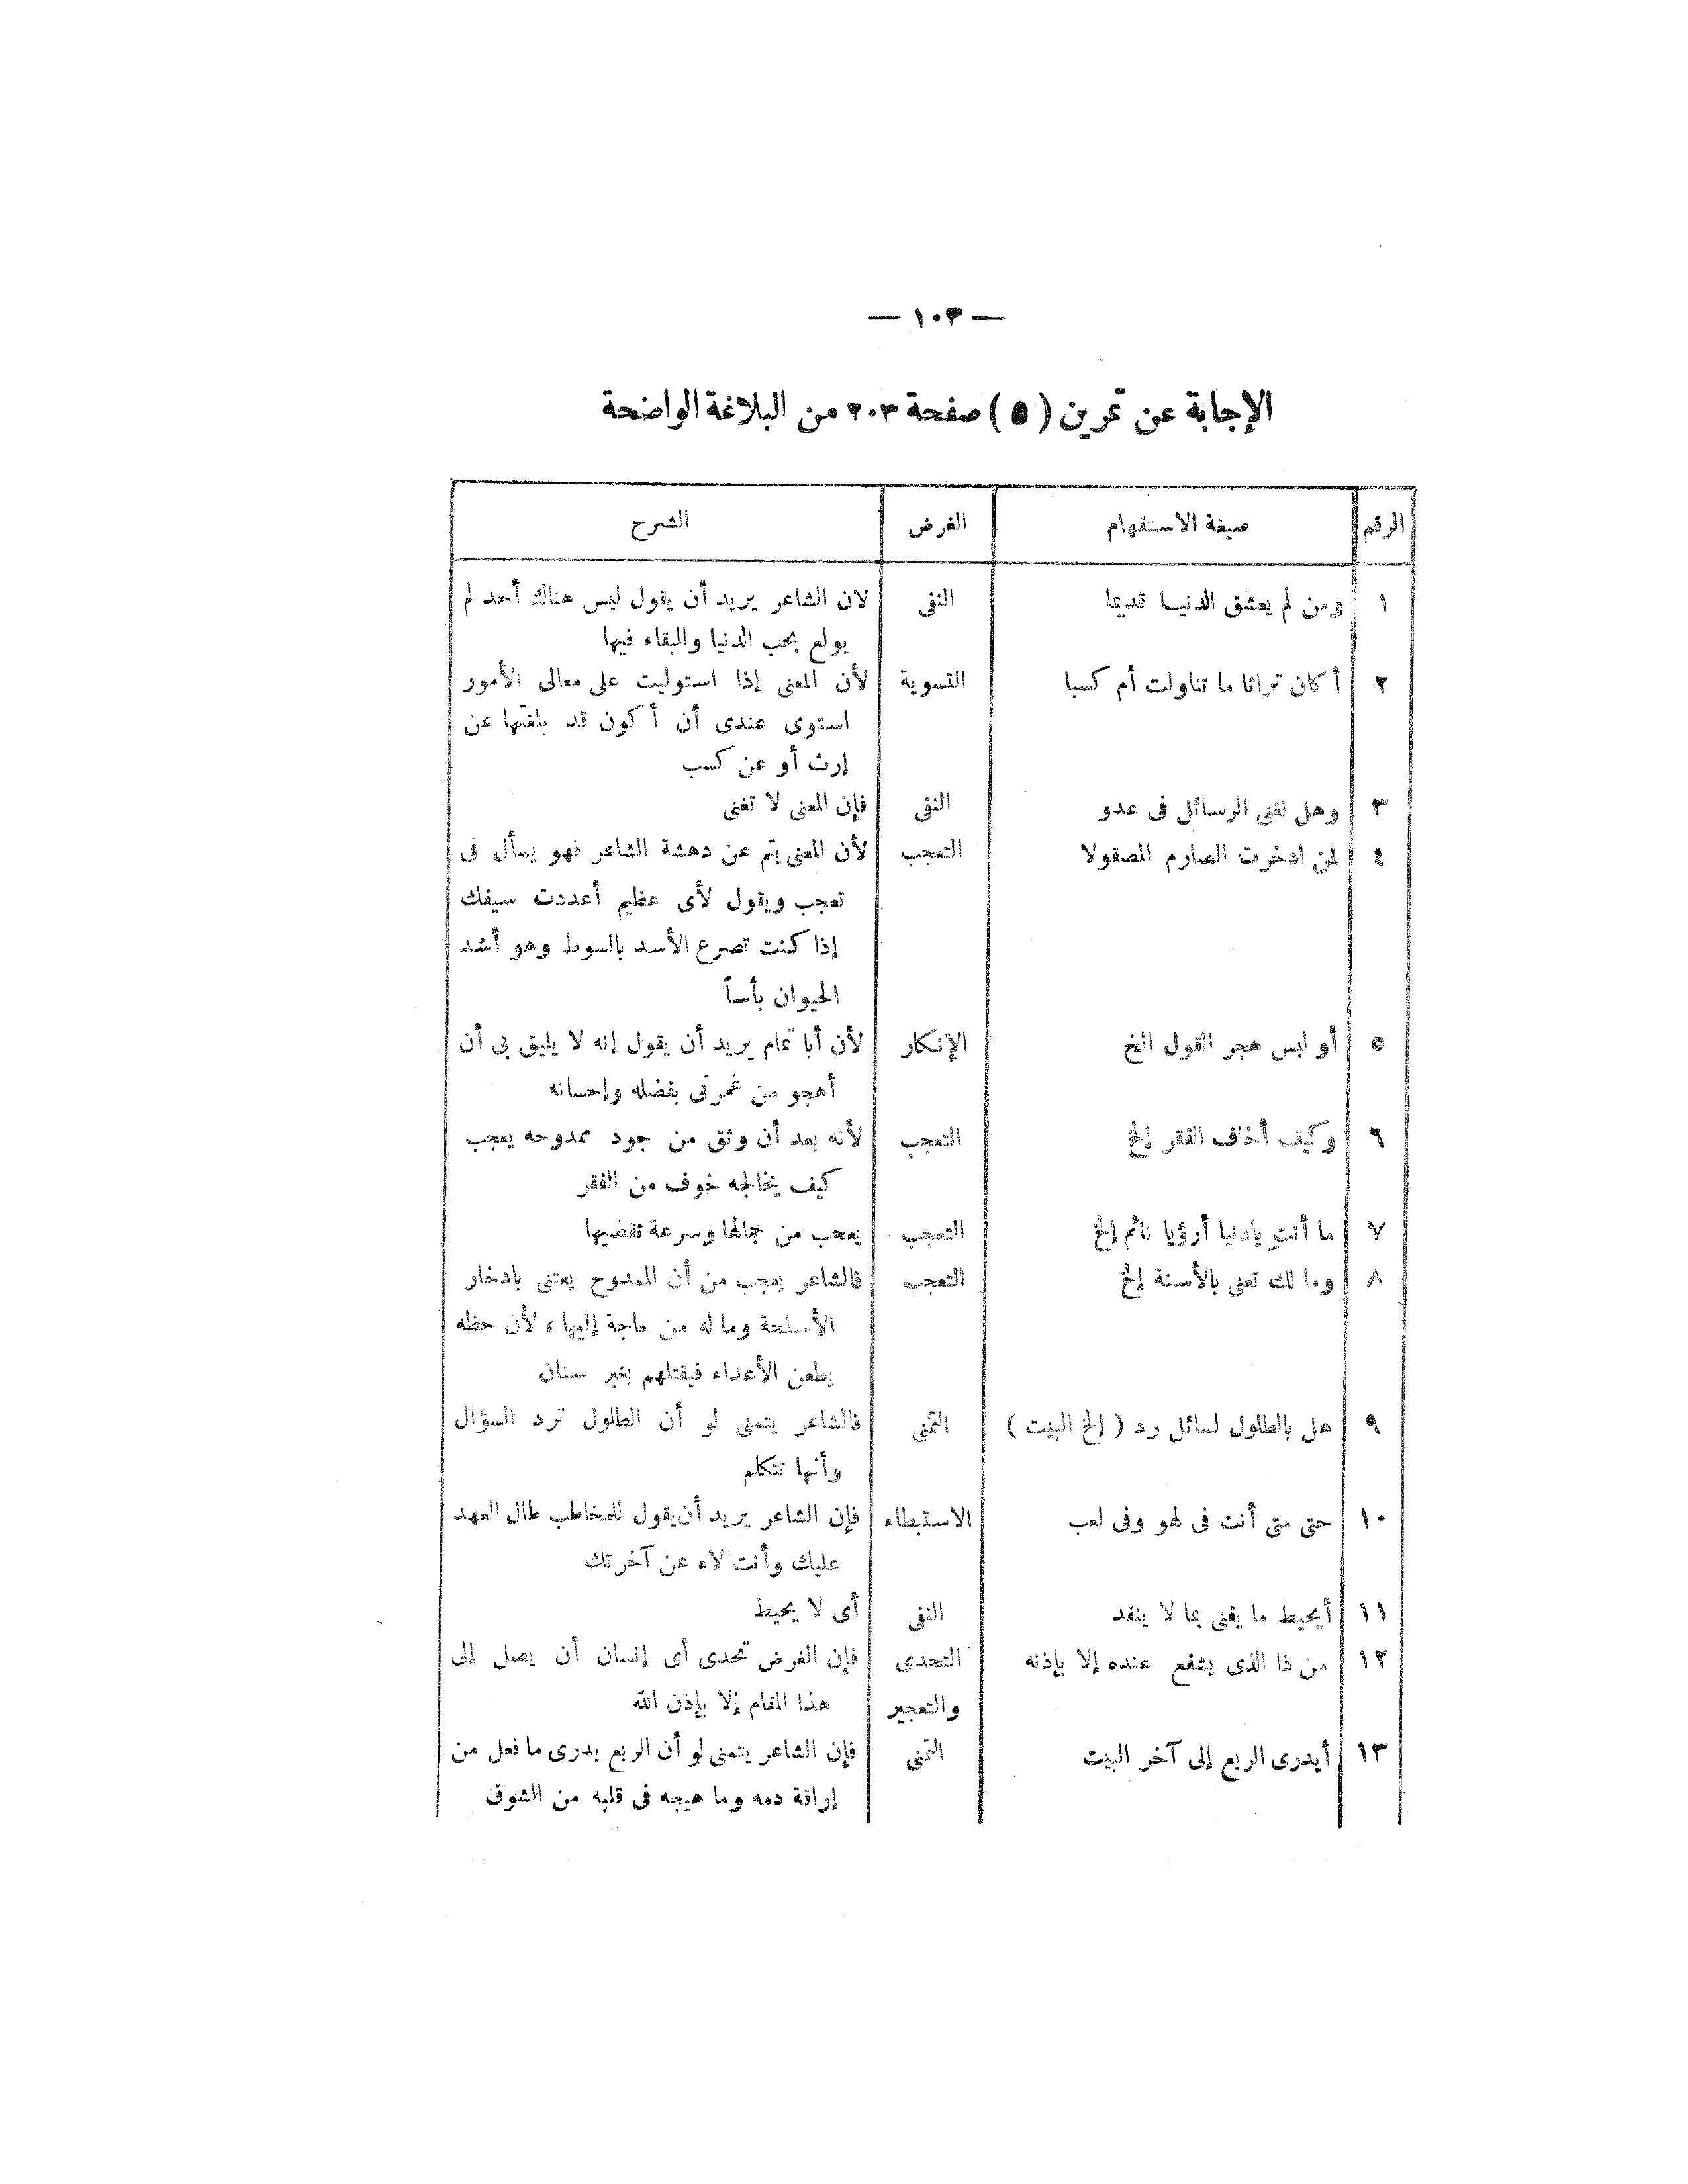 — ١٠٣ —
الإجابة عن تمرين ( ٥ ) صفحة ٢٠٣ من البلاغة الواضحة
الرقم | صيغة الاستفهام | الغرض | الشرح
١ | ومن لم يعشق الدنيا قديما | النفى | لان الشاعر يريد أن يقول ليس هناك أحد لم
يولع بحب الدنيا والبقاء فيها
٢ | أكان تراثا ما تناولت أم كسبا | التسوية | لأن المعنى إذا استوليت على معالى الأمور
استوى عندى أن أكون قد بلغتها عن
إرث أو عن كسب
٣ | وهل تغنى الرسائل فى عدو | النفى | فإن المعنى لا تغنى
٤ | لمن ادخرت الصارم المصقولا | التعجب | لأن المعنى يتم عن دهشة الشاعر فهو يسأل فى
تعجب ويقول لأى عظيم أعددت سيفك
إذا كنت تصرع الأسد بالسوط وهو أشد
الحيوان بأساً
٥ | أو لبس هجر القول الخ | الإنكار | لأن أبا تمام يريد أن يقول إنه لا يليق بى أن
أهجو من غمرنى بفضله وإحسانه
٦ | وكيف أخاف الفقر إلخ | التعجب | لأنه بعد أن وثق من جود ممدوحه يعجب
كيف يخالجه خوف من الفقر
٧ | ما أنتِ يادنيا أرؤيا نائم إلخ | التعجب | يعجب من جمالها وسرعة تقضيها
٨ | وما لك تعنى بالأسنة إلخ | التعجب | فالشاعر يعجب من أن الممدوح يعتنى بادخار
الأسلحة وماله من حاجة إليها ، لأن حظه
يطعن الأعداء فيقتلهم بغير سنان
٩ | هل بالطلول لسائل رد ( إلخ البيت ) | التمنى | فالشاعر يتمنى لو أن الطلول ترد السؤال
وأنها تتكلم
١٠ | حتى متى أنت فى لهو وفى لعب | الاستبطاء | فإن الشاعر يريد أن يقول للمخاطب طال العهد
عليك وأنت لاه عن آخرتك
١١ | أيحيط ما يفنى بما لا ينفد | النفى | أى لا يحيط
١٢ | من ذا الذى يشفع عنده إلا بإذنه | التحدى | فإن الغرض تحدى أى إنسان أن يصل إلى
والتعجيز | هذا المقام إلا بإذن الله
١٣ | أيدرى الربع إلى آخر البيت | التمنى | فإن الشاعر يتمنى لو أن الربع يدرى ما فعل من
إراقة دمه وما هيجه فى قلبه من الشوق